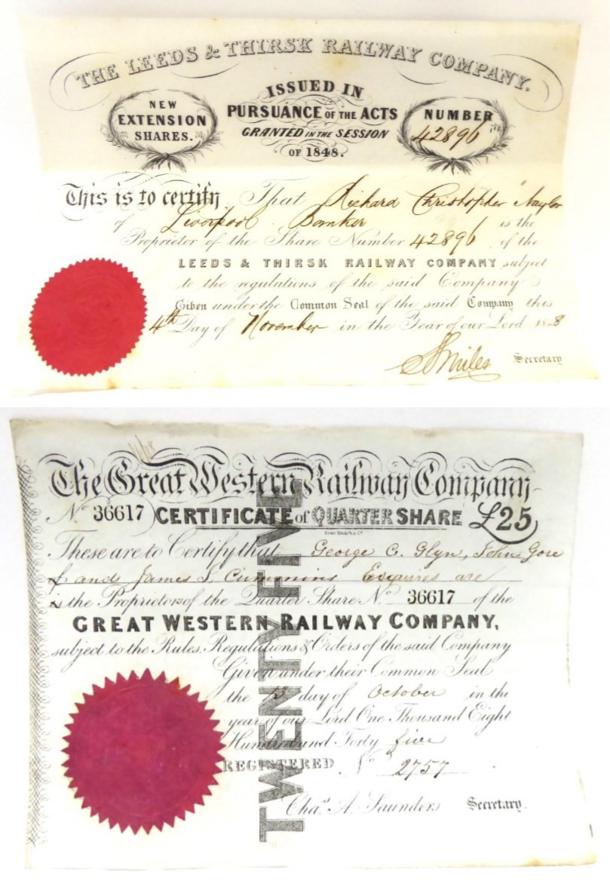 THE LEEDS & THIRSK RAILWAY COMPANY.
NEW EXTENSION SHARES.
ISSUED IN
PURSUANCE OF THE ACTS
GRANTED IN THE SESSION
OF 1848.
NUMBER
42896
This is to certify That Richard Christopher Naylor
of Liverpool Banker is the
Proprietor of the Share Number 42896 of the
LEEDS & THIRSK RAILWAY COMPANY subject
to the regulations of the said Company
Given under the Common Seal of the said Company this
4th Day of November in the Year of our Lord 1848
S Smiles Secretary
The Great Western Railway Company
No. 36617 CERTIFICATE of QUARTER SHARE £25
These are to Certify that George C. Glyn, John Gore
and James J. Cummins Esquires are
is the Proprietors of the Quarter Share No. 36617 of the
GREAT WESTERN RAILWAY COMPANY,
subject to the Rules, Regulations & Orders of the said Company
Given under their Common Seal
the day of October in the
year of our Lord One Thousand Eight
Hundred and Forty five
REGISTERED No 2757
Chas. A. Saunders Secretary.
TWENTY FIVE